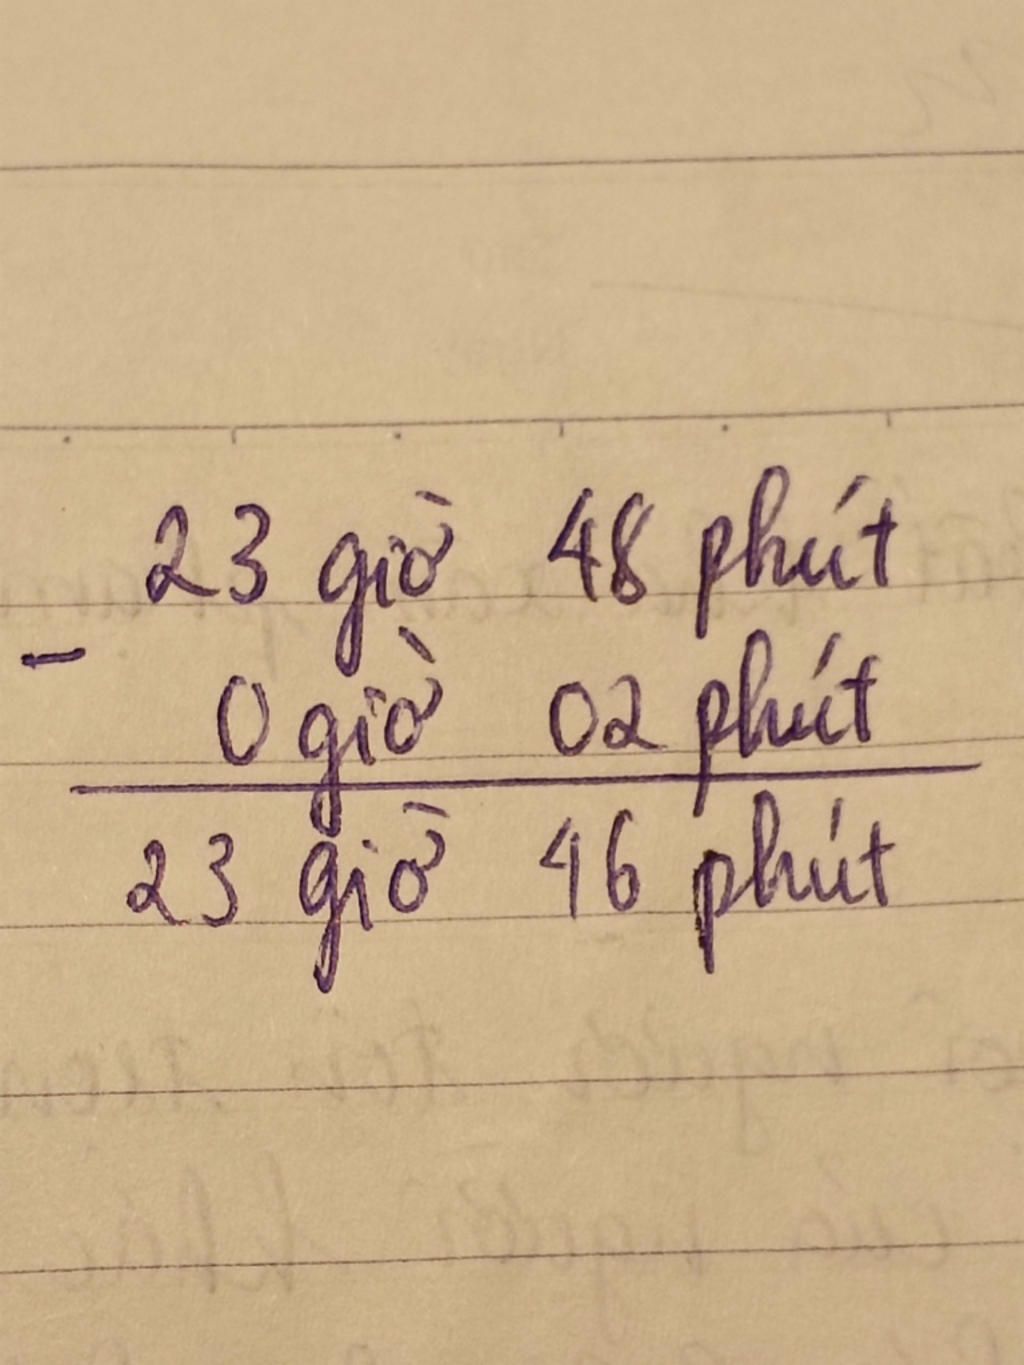 23 giờ 48 phút
-
0 giờ 02 phút
23 giờ 46 phút